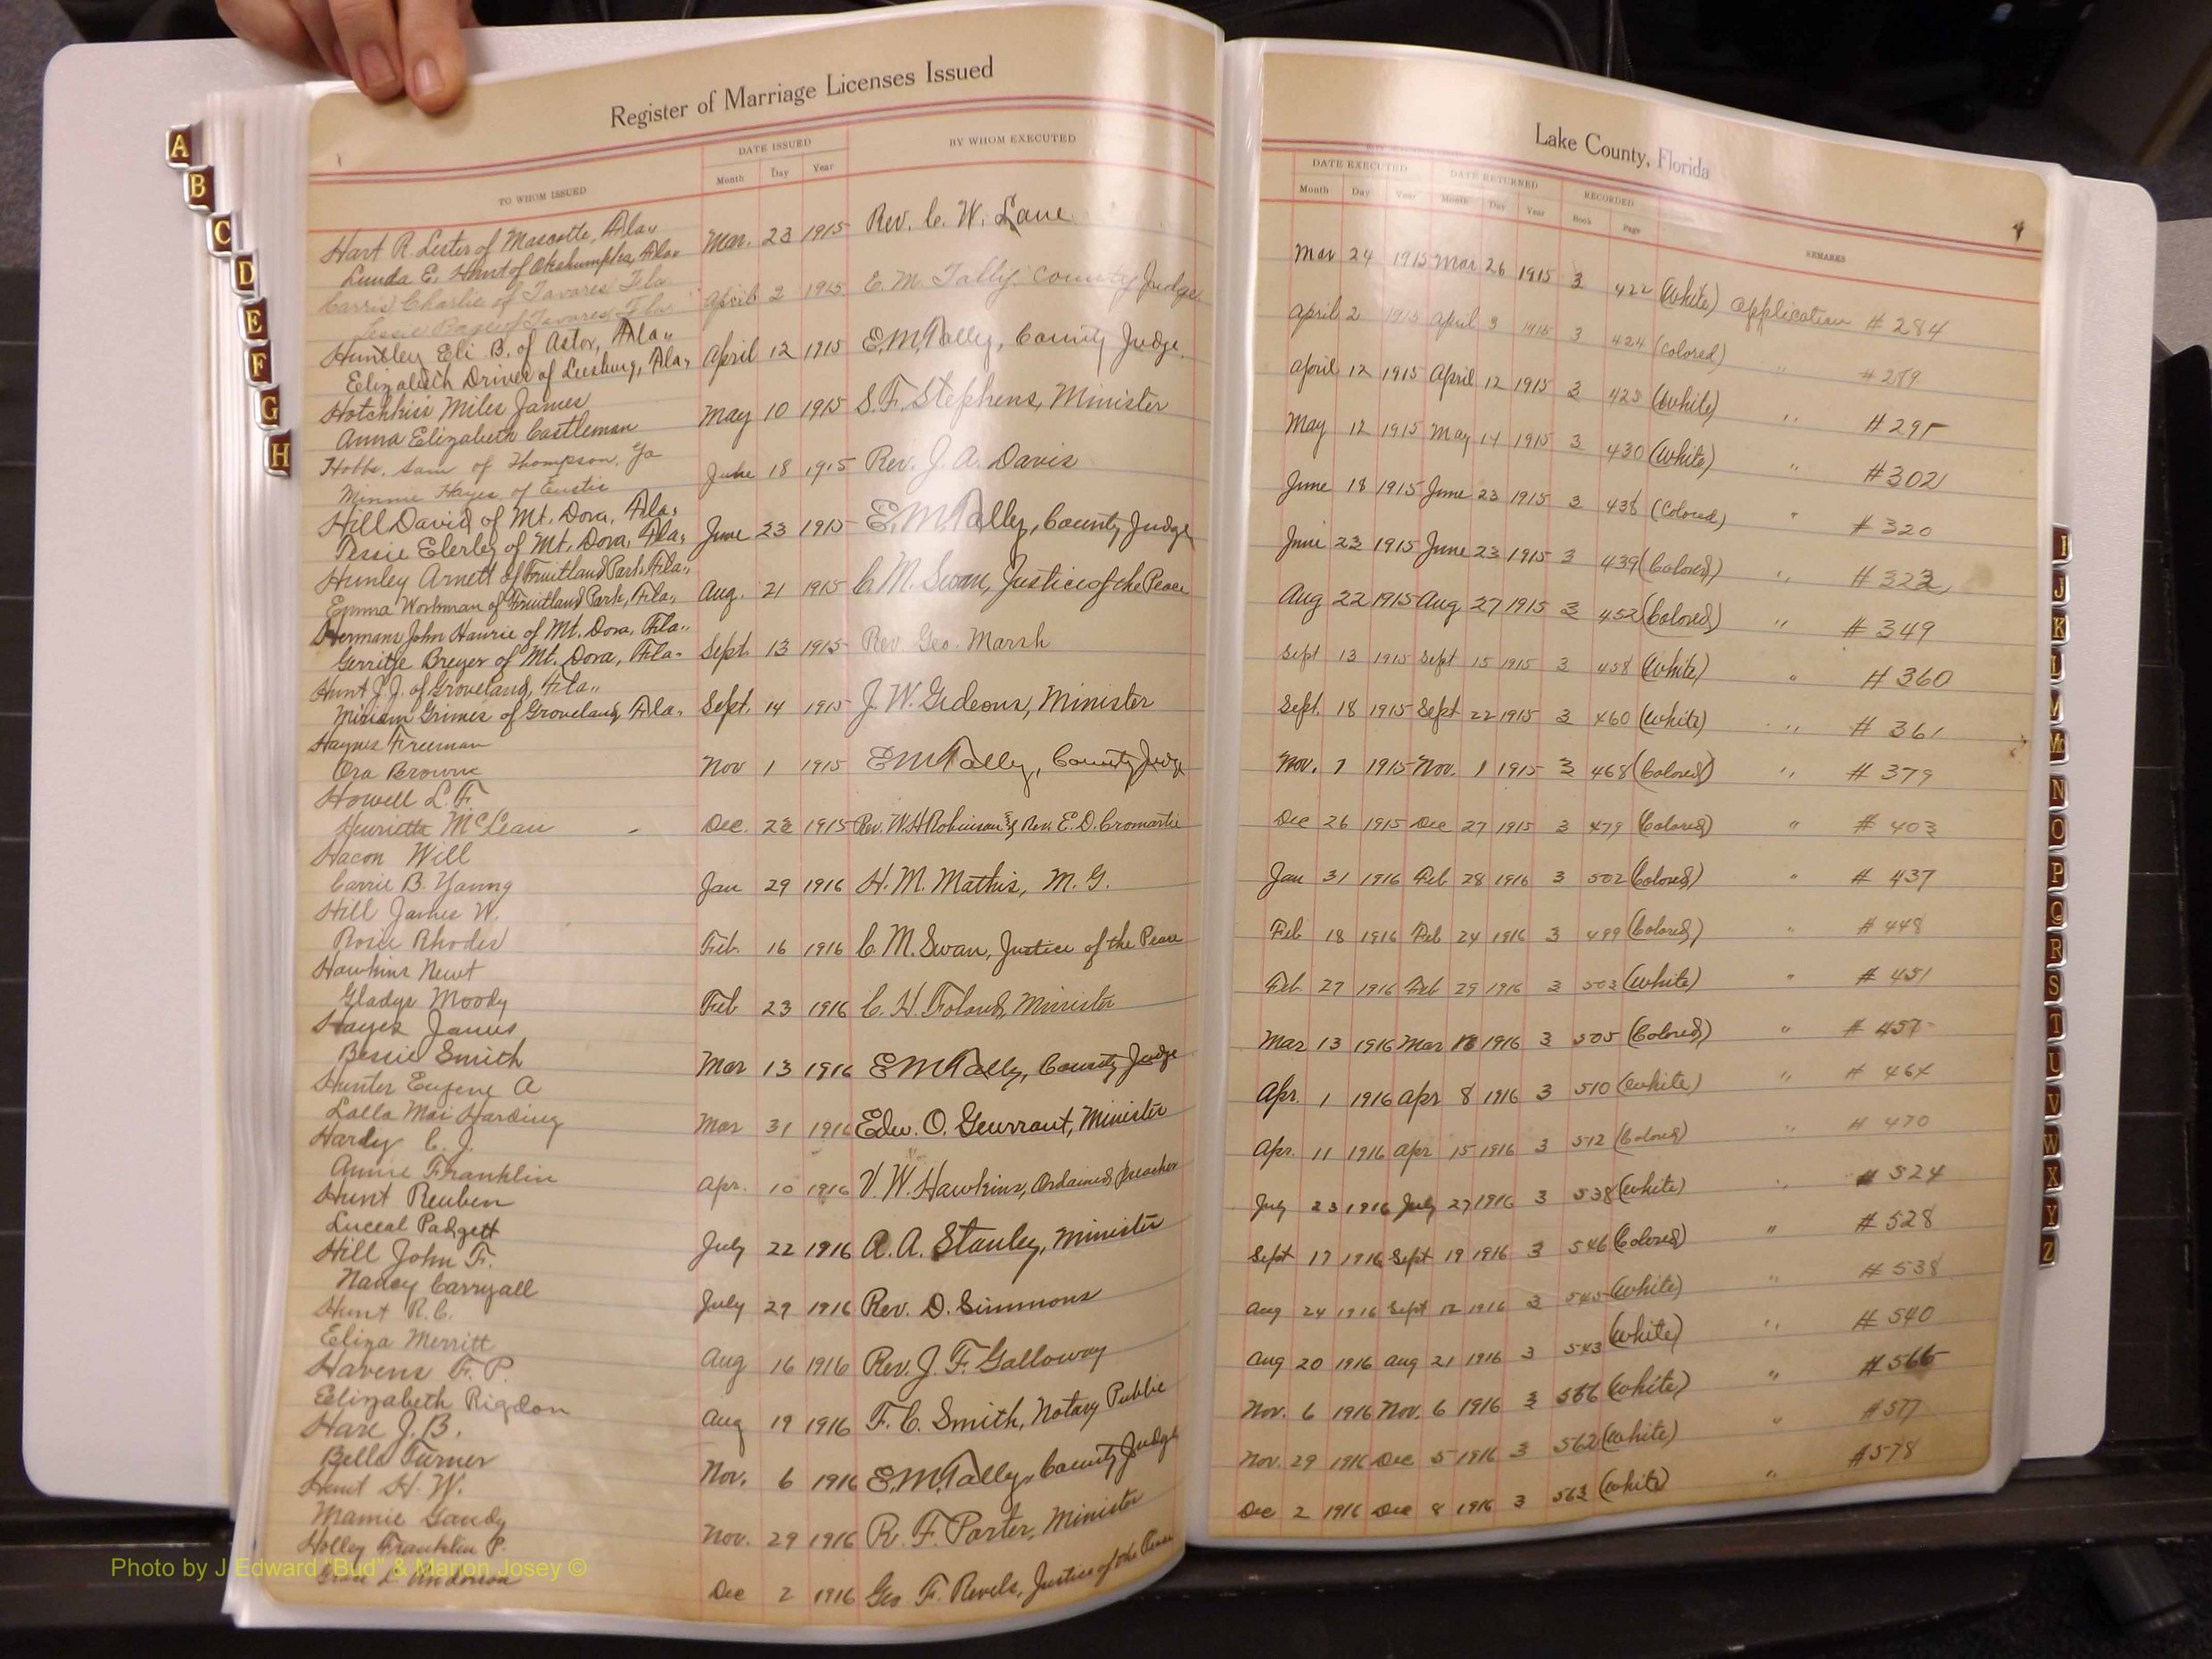 Register of Marriage Licenses Issued
TO WHOM ISSUED
DATE ISSUED
Month Day Year
BY WHOM EXECUTED
Hart R. Lester of Mascotte, Fla.
Lunda E. Hunt of Okahumpka, Fla.
Mar. 23 1915 Rev. C. W. Lane
Charlie of Tavares Fla
of Tavares Fla
April 2 1915 E. M. Tally County Judge
Huntley Eli B. of Astor, Fla.
Elizabeth Driver of Leesburg, Fla.
April 12 1915 E. M. Tally, County Judge.
Hotchkiss Miles James
Anna Elizabeth Castleman
May 10 1915 S. F. Stephens, Minister
Hobbs, Sam of Thompson, Ga
Minnie Hayes of Eustis
June 18 1915 Rev. J. A. Davis
Hill David of Mt. Dora, Fla.
Tessie Elerley of Mt. Dora, Fla.
June 23 1915 E. M. Tally, County Judge
Hunley Arnett of Fruitland Park, Fla.
Emma Workman of Fruitland Park, Fla.
Aug. 21 1915 C. M. Swan, Justice of the Peace
Hermans John Haurie of Mt. Dora, Fla.
Gerritje Breyer of Mt. Dora, Fla.
Sept. 13 1915 Rev. Geo. Marsh
Hunt J. J. of Groveland, Fla.
Miriam Grimes of Groveland, Fla.
Sept. 14 1915 J. W. Gideons, Minister
Haynes Freeman
Ora Browne
Nov 1 1915 E M Tally, County Judge
Howell L. F.
Henrietta McLean
Dec. 1915 Rev. W. H. Robinson & Rev. E. D. Cromartie
Hacon Will
Carrie B. Young
Jan 29 1916 H. M. Mathis, M. G.
Hill James W.
Rosie Rhodes
Feb. 16 1916 C. M. Swan, Justice of the Peace
Hawkins Newt
Gladys Moody
Feb 23 1916 C. H. Foland, Minister
Hayes James
Bessie Smith
Mar 13 1916 E M Tally, County Judge
Hunter Eugene A
Lalla Mai Harding
Mar 31 1916 Edw. O. Geurrant, Minister
Hardy C. J.
Annie Franklin
Apr. 10 1916 V. W. Hawkins, Ordained preacher
Hunt Reuben
Luceal Padgett
July 22 1916 A. A. Stanley, Minister
Hill John F.
Nancy Carryall
July 29 1916 Rev. D. Simmons
Hunt R. C.
Eliza Merritt
Aug 16 1916 Rev. J. F. Galloway
Havens F. P.
Elizabeth Rigdon
Aug 19 1916 F. C. Smith, Notary Public
Hare J. B.
Bella Turner
Nov. 6 1916 E. M. Tally, County Judge
Hunt H. W.
Mamie Gandy
Nov. 29 1916 R. F. Porter, Minister
Holley Franklin P.
Anderson
Dec 2 1916 Geo F. Revels, Justice of the Peace
Lake County, Florida
4
DATE EXECUTED DATE RETURNED RECORDED REMARKS
Month Day Year Month Day Year Book Page
Mar 24 1915 Mar 26 1915 3 422 (White) Application # 284
April 2 1915 April 3 1915 3 424 (Colored) " # 289
April 12 1915 April 12 1915 3 425 (White) " # 295
May 12 1915 May 14 1915 3 430 (White) " # 302
June 18 1915 June 23 1915 3 438 (Colored) " # 320
June 23 1915 June 23 1915 3 439 (Colored) " # 323
Aug 22 1915 Aug 27 1915 3 452 (Colored) " # 349
Sept 13 1915 Sept 15 1915 3 458 (White) " # 360
Sept. 18 1915 Sept 22 1915 3 460 (White) " # 361
Nov. 1 1915 Nov. 1 1915 3 468 (Colored) " # 379
Dec 26 1915 Dec 27 1915 3 479 (Colored) " # 403
Jan 31 1916 Feb 28 1916 3 502 (Colored) " # 437
Feb 18 1916 Feb 24 1916 3 499 (Colored) " # 448
Feb 27 1916 Feb 29 1916 3 503 (White) " # 451
Mar 13 1916 Mar 1916 3 505 (Colored) " # 457
Apr. 1 1916 Apr 8 1916 3 510 (White) " # 464
Apr. 11 1916 Apr 15 1916 3 512 (Colored) " # 470
July 23 1916 July 27 1916 3 538 (White) " # 524
Sept 17 1916 Sept 19 1916 3 546 (Colored) " # 528
Aug 24 1916 Sept 12 1916 3 545 (White) " # 538
Aug 20 1916 Aug 21 1916 3 543 (White) " # 540
Nov. 6 1916 Nov. 6 1916 3 556 (White) " # 566
Nov. 29 1916 Dec 5 1916 3 562 (White) " # 577
Dec 2 1916 Dec 8 1916 3 563 (White) " # 578
A
B
C
D
E
F
G
H
I
J
K
L
M
Mc
N
O
P
Q
R
S
T
U
V
W
X
Y
Z
Photo by J Edward "Bud" & Marion Josey ©